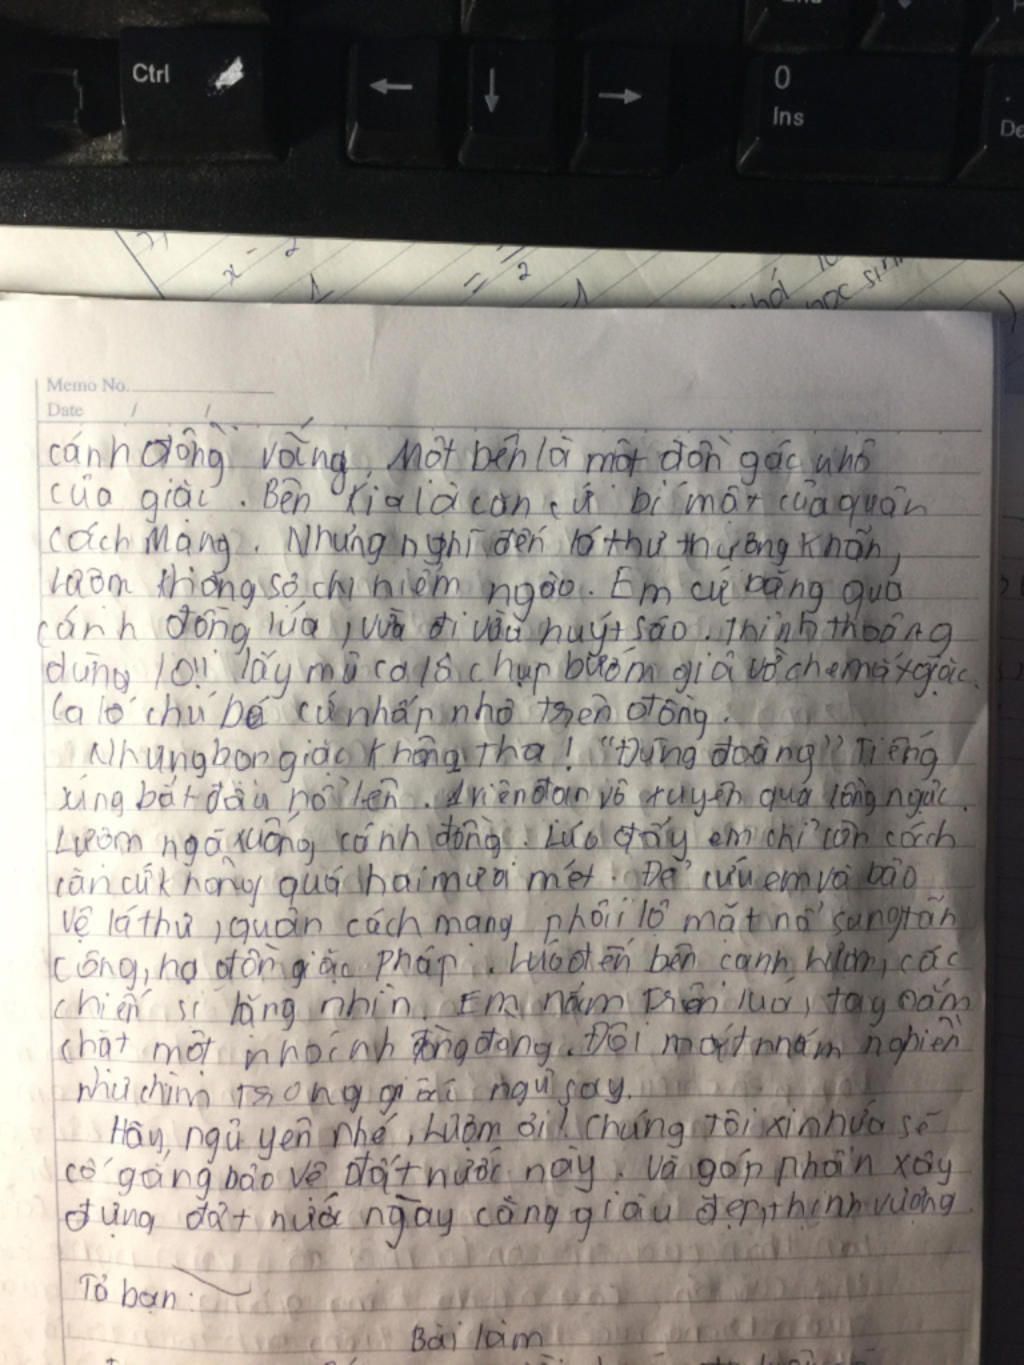 Ctrl
←
↓
→
0
Ins
De
x - 2
= 2
học sinh
Memo No.
Date / /
cánh đồng vắng. Một bên là một đồn gác nhỏ
của giặc. Bên kia là căn cứ bí mật của quân
cách mạng. Nhưng nghĩ đến lá thư thượng khẩn,
Lượm không sợ chi hiểm ngèo. Em cứ băng qua
cánh đồng lúa, vừa đi vừa huýt sáo. Thỉnh thoảng
dừng lại lấy mũ ca lô chụp bướm giả vờ che mắt giặc.
Ca lô chú bé cứ nhấp nhô trên đồng.
Nhưng bọn giặc không tha! "Đùng đoàng" Tiếng
súng bắt đầu nổ lên. 1 viên đạn vô xuyên qua lồng ngực.
Lượm ngã xuống cánh đồng. Lúc đấy em chỉ còn cách
căn cứ không quá hai mươi mét. Để cứu em và bảo
vệ lá thư, quân cách mạng phải lộ mặt nổ súng tấn
công, hạ đồn giặc Pháp. Lúc đến bên cạnh Lượm, các
chiến sĩ lặng nhìn. Em nằm trên lúa, tay nắm
chặt một nhánh đòng đòng. Đôi mắt nhắm nghiền
như chìm trong giấc ngủ say.
Hãy ngủ yên nhé, Lượm ơi! Chúng tôi xin hứa sẽ
cố gắng bảo vệ đất nước này. Và góp phần xây
dựng đất nước ngày càng giàu đẹp, thịnh vượng.
Tả bạn:
Bài làm